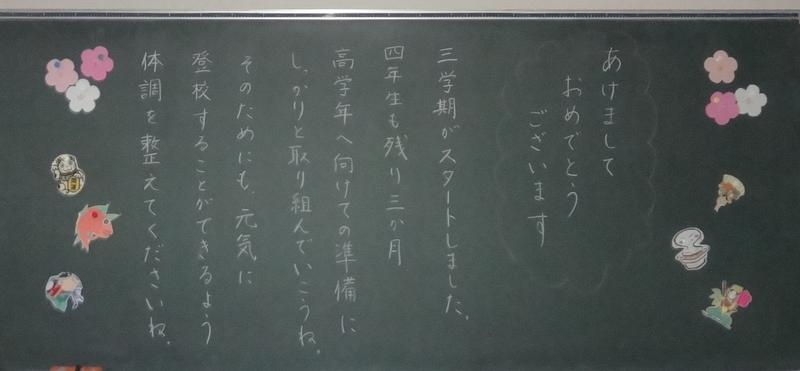 あけまして
おめでとう
ございます
三学期がスタートしました。
四年生も残り三か月
高学年へ向けての準備に
しっかりと取り組んでいこうね。
そのためにも、元気に
登校することができるよう
体調を整えてくださいね。